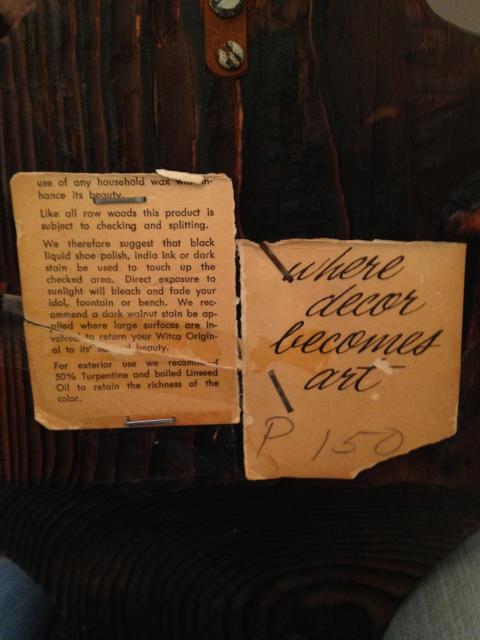 use of any household wax will en-
hance its beauty.
Like all raw woods this product is
subject to checking and splitting.
We therefore suggest that black
liquid shoe polish, india ink or dark
stain be used to touch up the
checked area. Direct exposure to
sunlight will bleach and fade your
idol, fountain or bench. We rec-
ommend a dark walnut stain be ap-
plied where large surfaces are in-
volved to return your Witco Origin-
al to its' natural beauty.
For exterior use we recommend
50% Turpentine and boiled Linseed
Oil to retain the richness of the
color.
where
decor
becomes
art
P 150